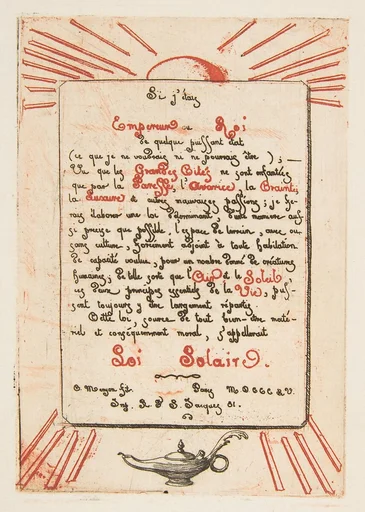 Si j'étais
Empereur ou Roi
de quelque puissant état
(ce que je ne voudrais ne ne pourrais être); —
Vu que les Grandes Cités ne sont enfantées
que par la Paresse, l'Avarice, la Crainte,
la Luxure & autres mauvaises passions; je fe-
rais élaborer une loi déterminant, d'une manière aus-
si précise que possible, l'espace de terrain, avec ou
sans culture, forcément adjoint à toute habitation
de capacité voulue, pour un nombre donné de créatures
humaines; de telle sorte que l'Air & le Soleil
ces deux principes essentiels de la Vie, y fus-
sent toujours & très largement répartis.
Cette loi, source de tout bien-être maté-
riel et conséquemment moral, s'appellerait
Loi Solaire.
C. Meryon fit. Paris MDCCCLV.
Imp. R. S. Jacques 81.